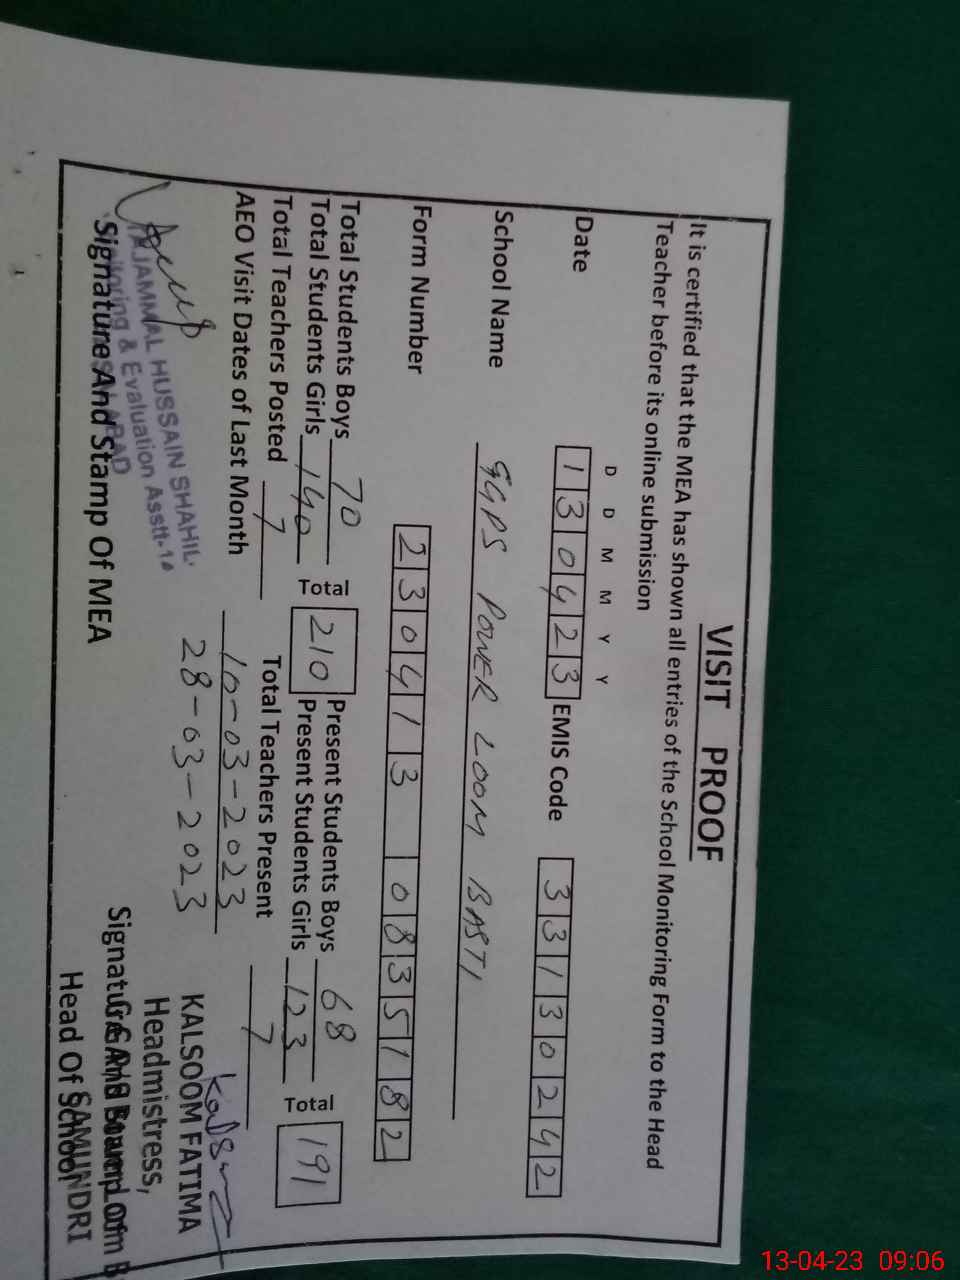 VISIT PROOF
It is certified that the MEA has shown all entries of the School Monitoring Form to the Head
Teacher before its online submission
D D M M Y Y
Date 1 3 0 4 2 3 EMIS Code 3 3 1 3 0 2 4 2
School Name GGPS POWER LOOM BASTI
Form Number 2 3 0 4 1 3 0 8 3 5 1 8 2
Total Students Boys 70 Total 210 Present Students Boys 68 Total 191
Total Students Girls 140 Present Students Girls 123
Total Teachers Posted 7 Total Teachers Present 7
AEO Visit Dates of Last Month 10-03-2023
28-03-2023
TAJAMMAL HUSSAIN SHAHI
Monitoring & Evaluation Asstt-1
Signature And Stamp Of MEA
KALSOOM FATIMA
Headmistress,
Signature And Stamp Of
Head Of School
SAMUNDRI
13-04-23 09:06